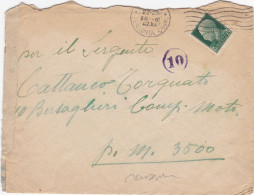 per il Sergente
Cattaneo Torquato
10 Bersaglieri Comp. Moto
p. m. 3500
10